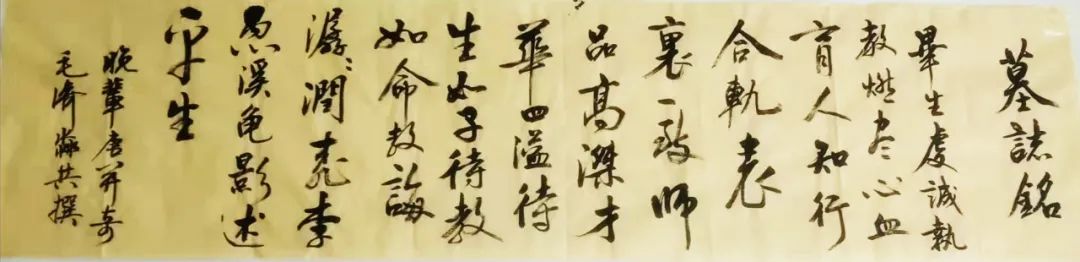 墓誌銘
畢生虔誠執
教燃尽心血
育人知行
合軌表
裏一致師
品高潔才
華四溢待
生如子待教
如命教誨
潺々潤桃李
愚溪龟影述
平生
晚輩唐昇奇
毛濟淼共撰